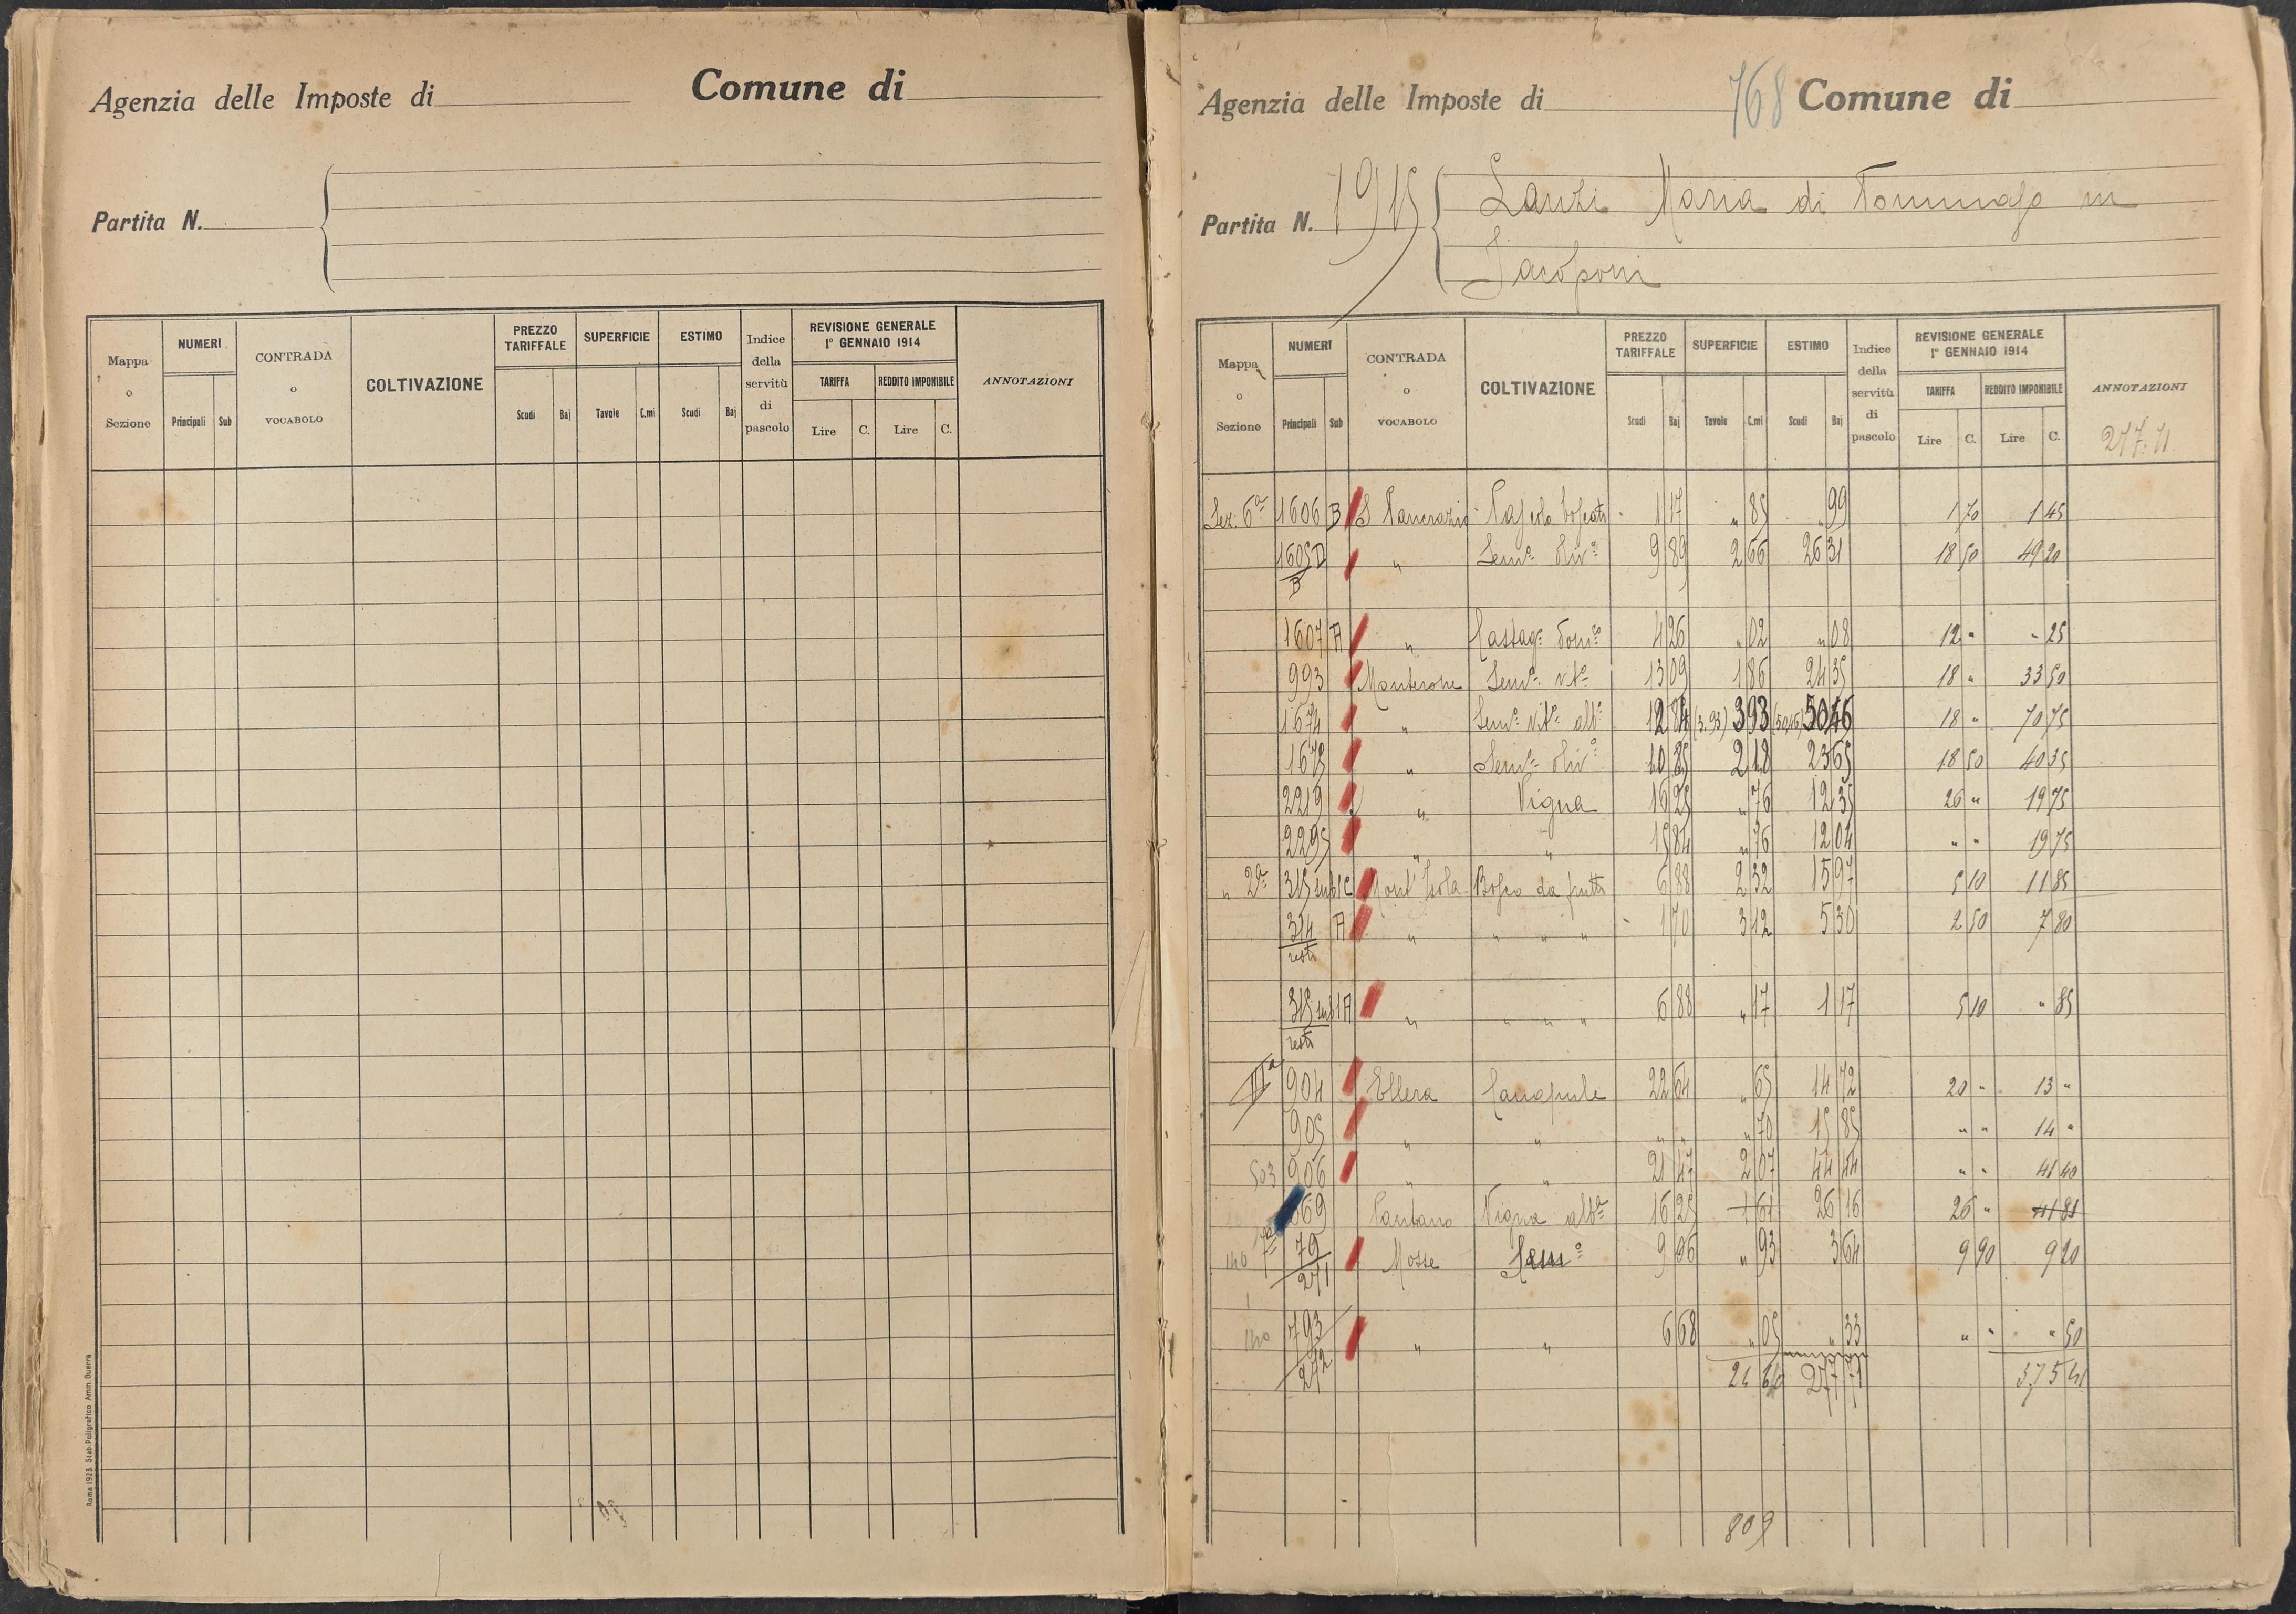 Agenzia delle Imposte di Comune di
Partita N.
Mappa o Sezione
NUMERI
Principali Sub
CONTRADA o VOCABOLO
COLTIVAZIONE
PREZZO TARIFFALE
Scudi Baj
SUPERFICIE
Tavole C.mi
ESTIMO
Scudi Baj
Indice della servitù di pascolo
REVISIONE GENERALE
1º GENNAIO 1914
TARIFFA REDDITO IMPONIBILE
Lire C. Lire C.
ANNOTAZIONI
Roma 1923 Stab. Poligrafico Amm. Guerra
Agenzia delle Imposte di 768 Comune di
Partita N. 1915
Lanzi Maria di Tommaso in
Jacoponi
Mappa o Sezione
NUMERI
Principali Sub
CONTRADA o VOCABOLO
COLTIVAZIONE
PREZZO TARIFFALE
Scudi Baj
SUPERFICIE
Tavole C.mi
ESTIMO
Scudi Baj
Indice della servitù di pascolo
REVISIONE GENERALE
1º GENNAIO 1914
TARIFFA REDDITO IMPONIBILE
Lire C. Lire C.
ANNOTAZIONI
277.71
Sez. 6ª 1606 B S Pancrazio Pascolo boscato 1 17 " 85 " 99 1 70 1 45
1605 D " Semº olivº 9 89 2 66 26 31 18 50 49 20
B
1607 A " Castagº domº 4 26 " 02 " 08 12 " " 25
993 Monterone Semº vitº 13 09 1 86 24 35 18 " 33 50
1674 " Semº vitº albº 12 84 (3.93) 3 93 (50,46) 50 46 18 " 70 75
1675 " Semº olivº 10 85 2 18 23 65 18 50 40 35
2219 " Vigna 16 25 " 76 12 35 26 " 19 75
2295 " " 15 84 " 76 12 04 " " 19 75
" 2ª 315 sub 1 C Mont' Isola Bosco da frutto 6 88 2 32 15 97 5 10 11 85
314 A " " " " 1 70 3 12 5 30 2 50 7 80
resto
315 sub 1 A " " " " 6 88 " 17 1 17 5 10 " 85
resto
904 Ellera Canapule 22 64 " 65 14 72 20 " 13 "
905 " " " " " 70 15 85 " " 14 "
503 906 " " 21 47 2 07 44 44 " " 41 40
669 Pantano Vigna albª 16 25 1 61 26 16 26 " 41 81
140 7ª 79 Mosse Semº 9 96 " 93 3 64 9 90 9 20
271
140 793 " " 6 68 " 05 " 33 " " " 50
272
277 71 375 41
809